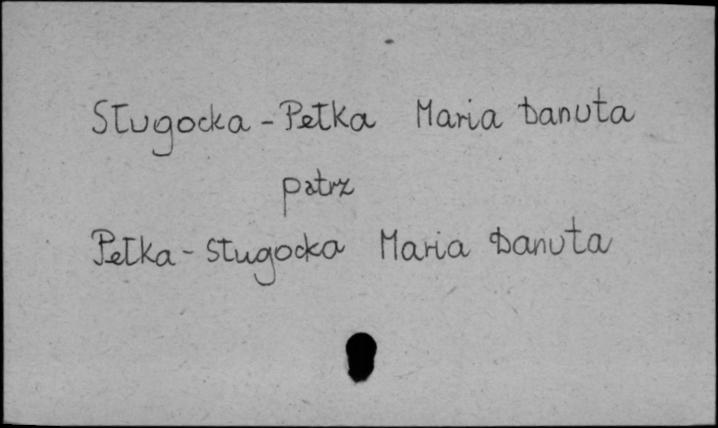 Sługocka-Pełka Maria Danuta
patrz
Pełka-Sługocka Maria Danuta